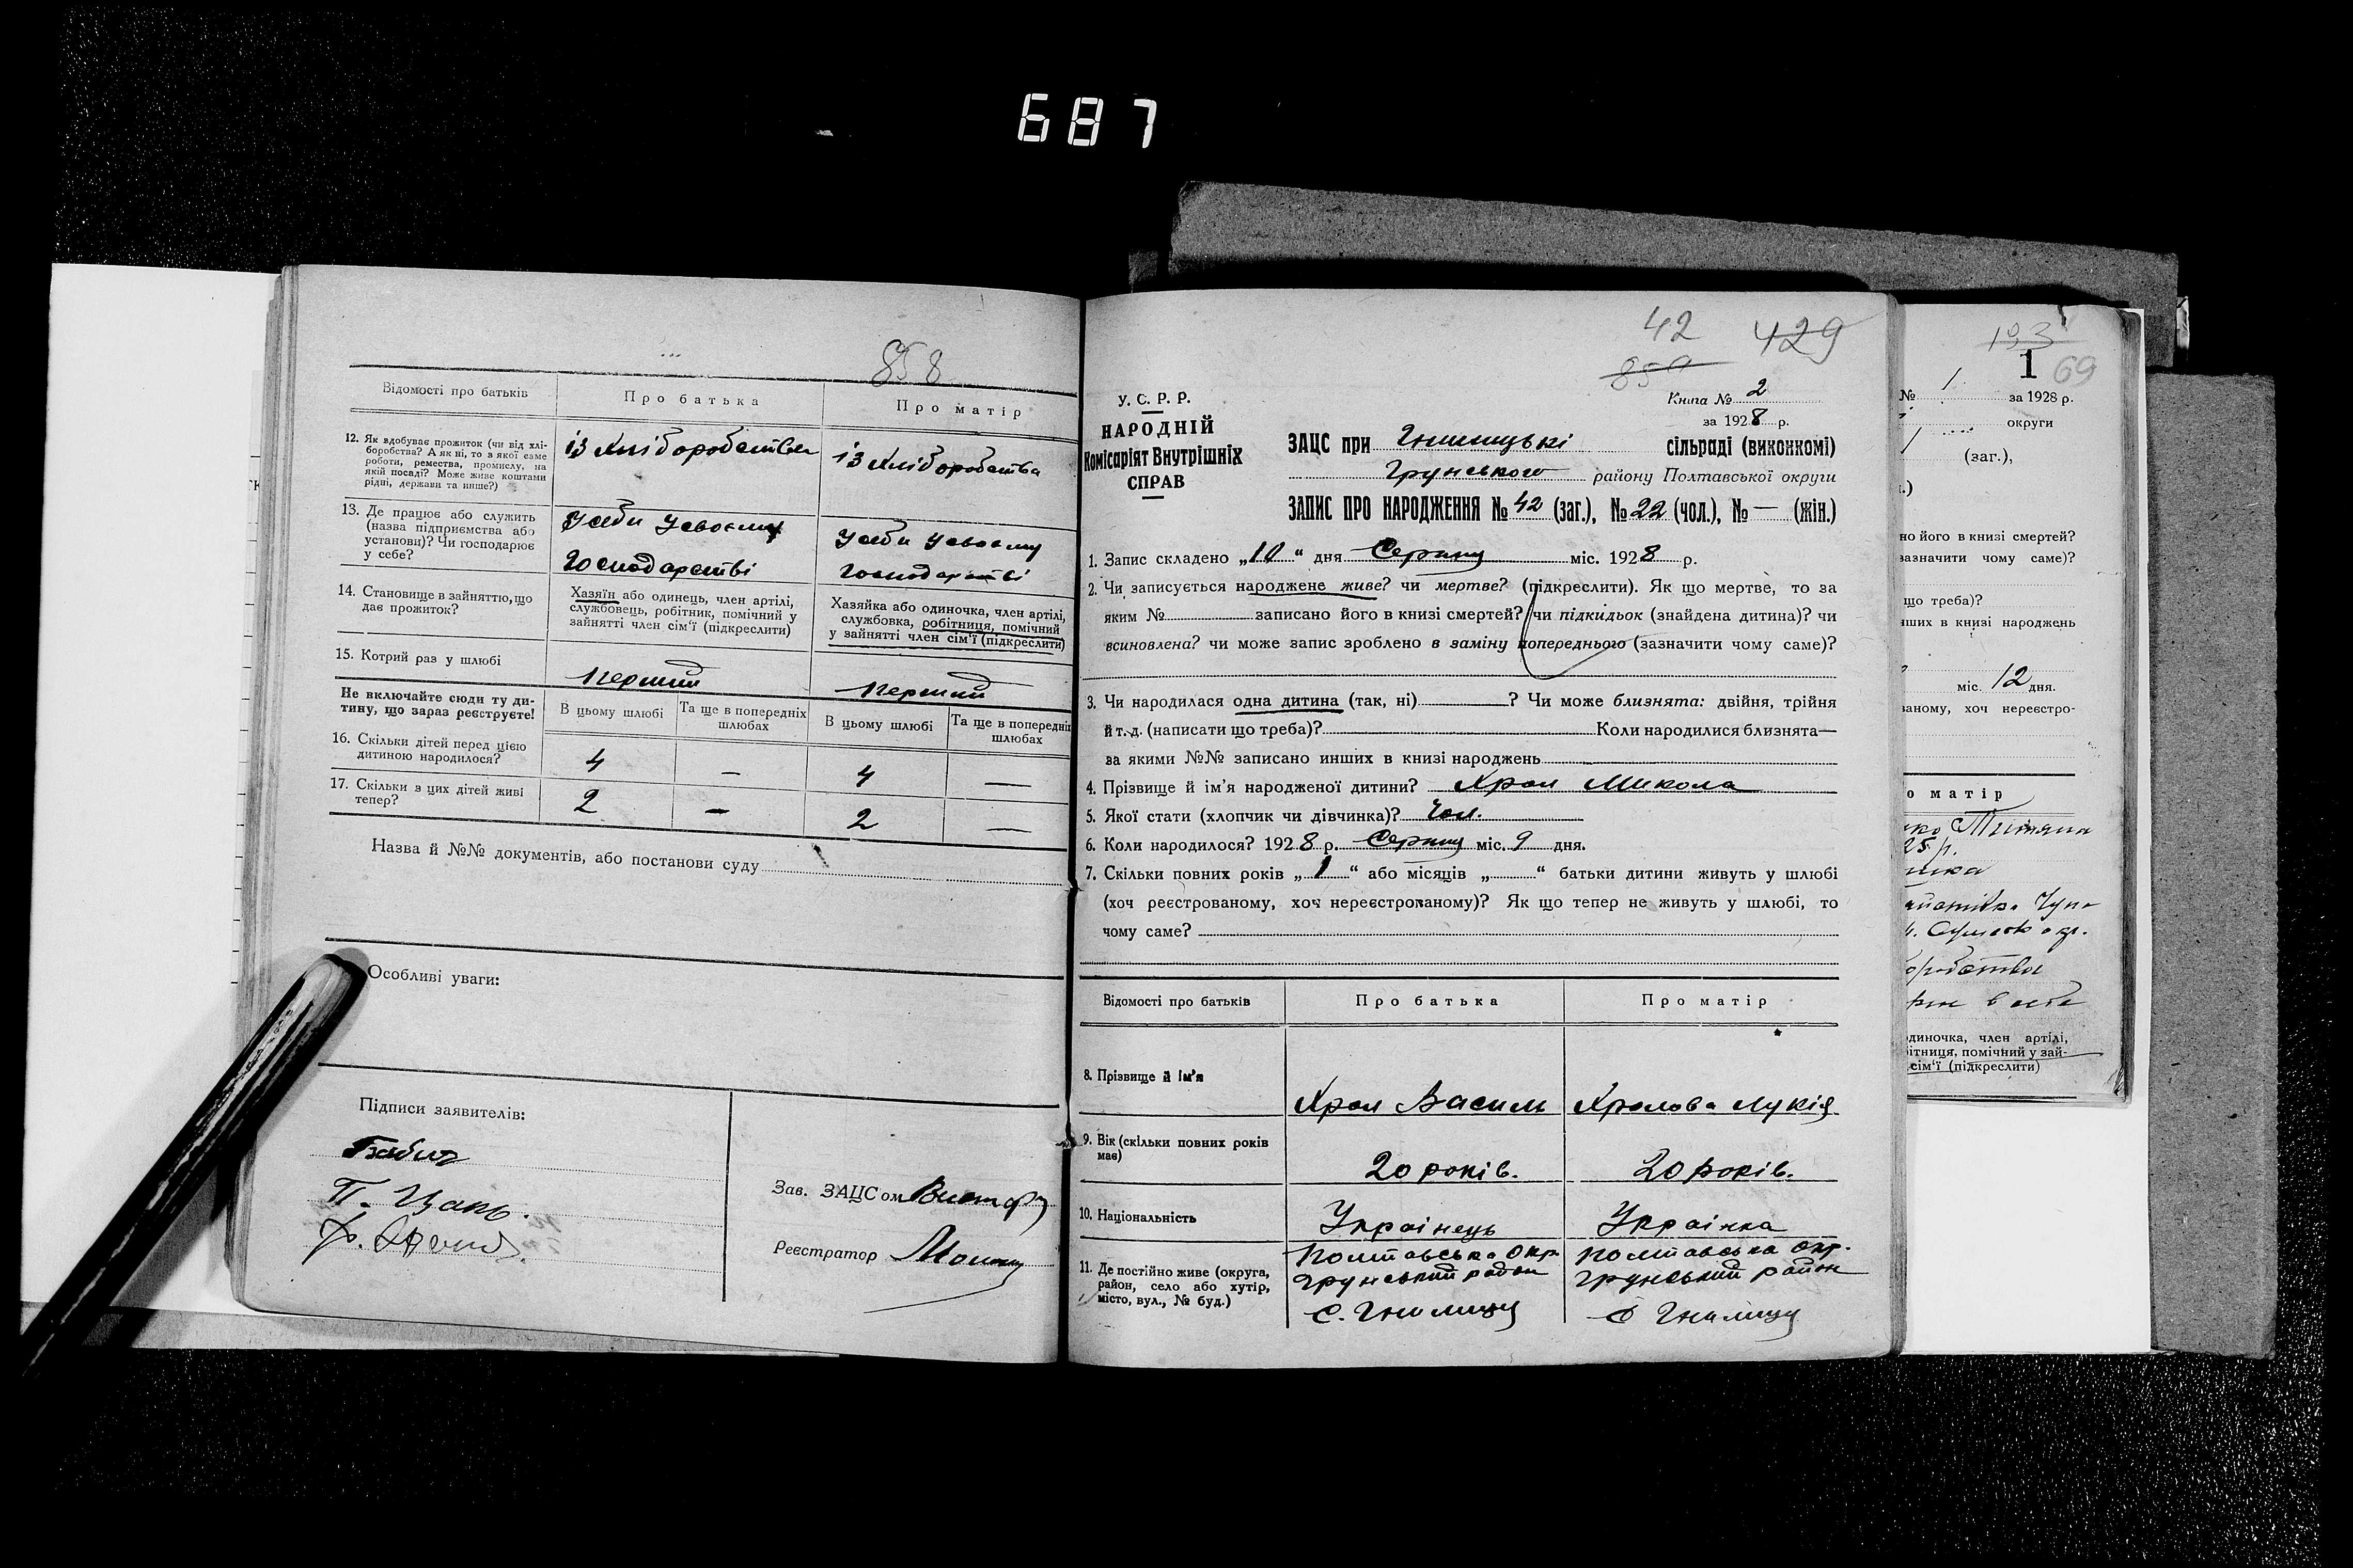 687
858
Відомості про батьків
Про батька
Про матір
12. Як здобуває прожиток (чи від хлі-
боробства? А як ні, то з якої саме
роботи, ремества, промислу, на
якій посаді? Може живе коштами
рідні, держави та инше?)
із хліборобства
із хліборобства
13. Де працює або служить
(назва підприємства або
установи)? Чи господарює
у себе?
У себи у своєму
господарстві
У себи у своєму
господарстві
14. Становище в зайняттю, що
дає прожиток?
Хазяїн або одинець, член артілі,
службовець, робітник, помічний у
зайнятті член сім'ї (підкреслити)
Хазяйка або одиночка, член артілі,
службовка, робітниця, помічний
у зайнятті член сім'ї (підкреслити)
15. Котрий раз у шлюбі
перший
перший
Не включайте сюди ту ди-
тину, що зараз реєструєте!
В цьому шлюбі
Та ще в попередніх
шлюбах
В цьому шлюбі
Та ще в попередніх
шлюбах
16. Скільки дітей перед цією
дитиною народилося?
4 — 4 —
17. Скільки з цих дітей живі
тепер?
2 — 2 —
Назва й №№ документів, або постанови суду
Особливі уваги:
Підписи заявителів:
Бабич
Зав. ЗАЦС ом
Реєстратор
42 429
859
Книга № 2
за 1928 р.
У. С. Р. Р.
НАРОДНІЙ
Комісаріят Внутрішніх
СПРАВ
ЗАЦС при Гнилицькі сільраді (виконкомі)
Грунського району Полтавської округи
ЗАПИС ПРО НАРОДЖЕННЯ № 42 (заг.), № 22 (чол.), № — (жін.)
1. Запис складено „10“ дня Серпня міс. 1928 р.
2. Чи записується народжене живе? чи мертве? (підкреслити). Як що мертве, то за
яким № записано його в книзі смертей? чи підкидьок (знайдена дитина)? чи
всиновлена? чи може запис зроблено в заміну попереднього (зазначити чому саме)?
3. Чи народилася одна дитина (так, ні) ? Чи може близнята: двійня, трійня
й т. д. (написати що треба)? Коли народилися близнята—
за якими №№ записано инших в книзі народжень
4. Прізвище й ім'я народженої дитини? Храл Микола
5. Якої стати (хлопчик чи дівчинка)? Чол.
6. Коли народилося? 1928 р. Серпня міс. 9 дня.
7. Скільки повних років „1“ або місяців „ “ батьки дитини живуть у шлюбі
(хоч реєстрованому, хоч нереєстрованому)? Як що тепер не живуть у шлюбі, то
чому саме?
Відомості про батьків
Про батька
Про матір
8. Прізвище й ім'я
Храл Василь
Хралова Лукія
9. Вік (скільки повних років
має)
20 років.
20 років.
10. Національність
Українець
Українка
11. Де постійно живе (округа,
район, село або хутір,
місто, вул., № буд.)
Полтавська окр.
Грунський район
с. Гнилиця
Полтавська окр.
Грунський район
с Гнилиця
193
1 69
№ 1. за 1928 р.
округи
(заг.),
но його в книзі смертей?
зазначити чому саме)?
що треба)?
нших в книзі народжень
міс. 12 дня.
ваному, хоч нереєстро-
о матір
25 р.
одиночка, член артілі,
бітниця, помічний у зай-
сім'ї (підкреслити)